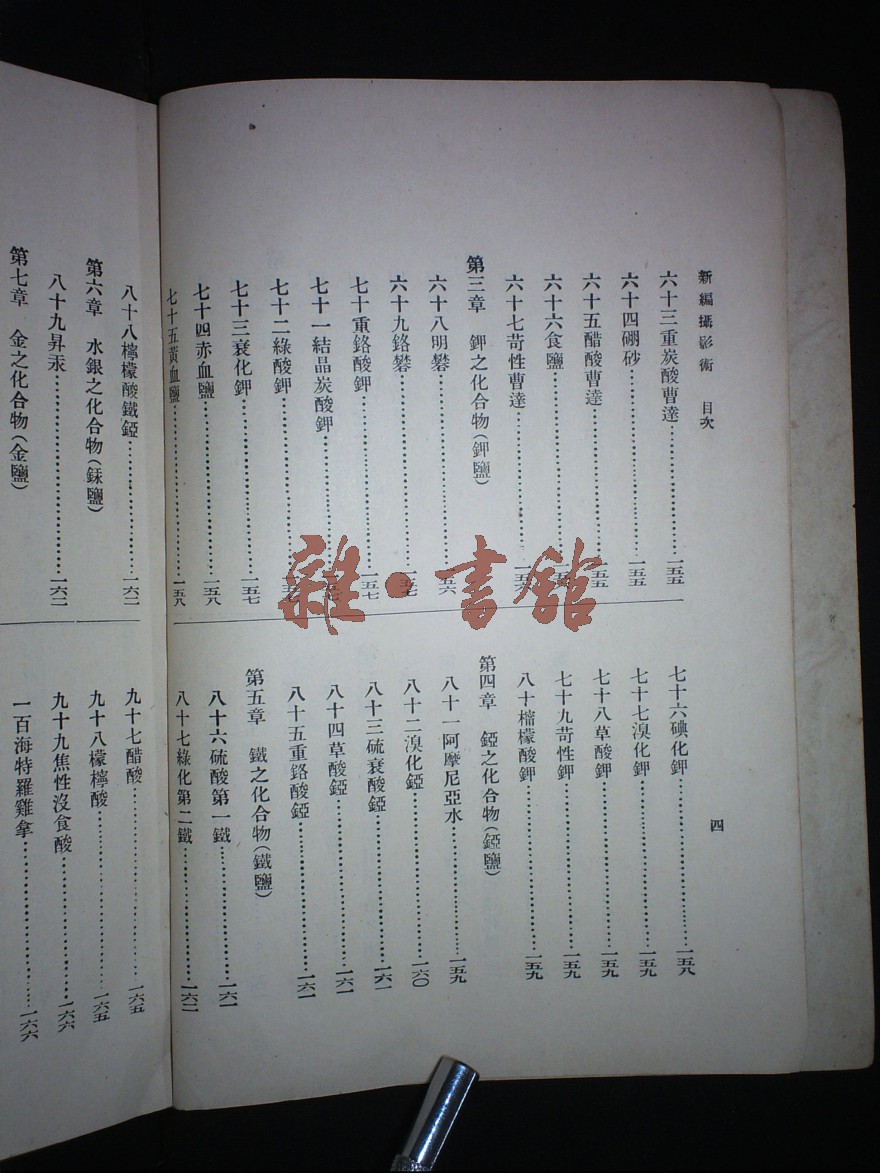 新編攝影術 目次
四
六十三重炭酸曹達……一五五
六十四硼砂……一五五
六十五醋酸曹達……一五五
六十六食鹽……
六十七苛性曹達……一五六
第三章 鉀之化合物(鉀鹽)
六十八明礬……五六
六十九鉻礬……一五七
七十重鉻酸鉀……一五七
七十一結晶炭酸鉀……
七十二綠酸鉀……
七十三衰化鉀……一五七
七十四赤血鹽……一五八
七十五黃血鹽……一五八
七十六碘化鉀……一五八
七十七溴化鉀……一五九
七十八草酸鉀……一五九
七十九苛性鉀……一五九
八十檸檬酸鉀……一五九
第四章 錏之化合物(錏鹽)
八十一阿摩尼亞水……一五九
八十二溴化錏……一六〇
八十三硫衰酸錏……一六一
八十四草酸錏……一六一
八十五重鉻酸錏……一六一
第五章 鐵之化合物(鐵鹽)
八十六硫酸第一鐵……一六一
八十七綠化第二鐵……一六二
八十八檸檬酸鐵錏……一六二
第六章 水銀之化合物(銾鹽)
八十九昇汞……一六二
第七章 金之化合物(金鹽)
九十七醋酸……一六五
九十八檬檸酸……一六五
九十九焦性沒食酸……一六六
一百海特羅雞拿……一六六
雜·書館